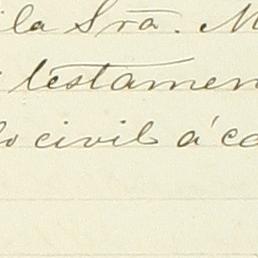 la Sra. M
testamen
civil á ca